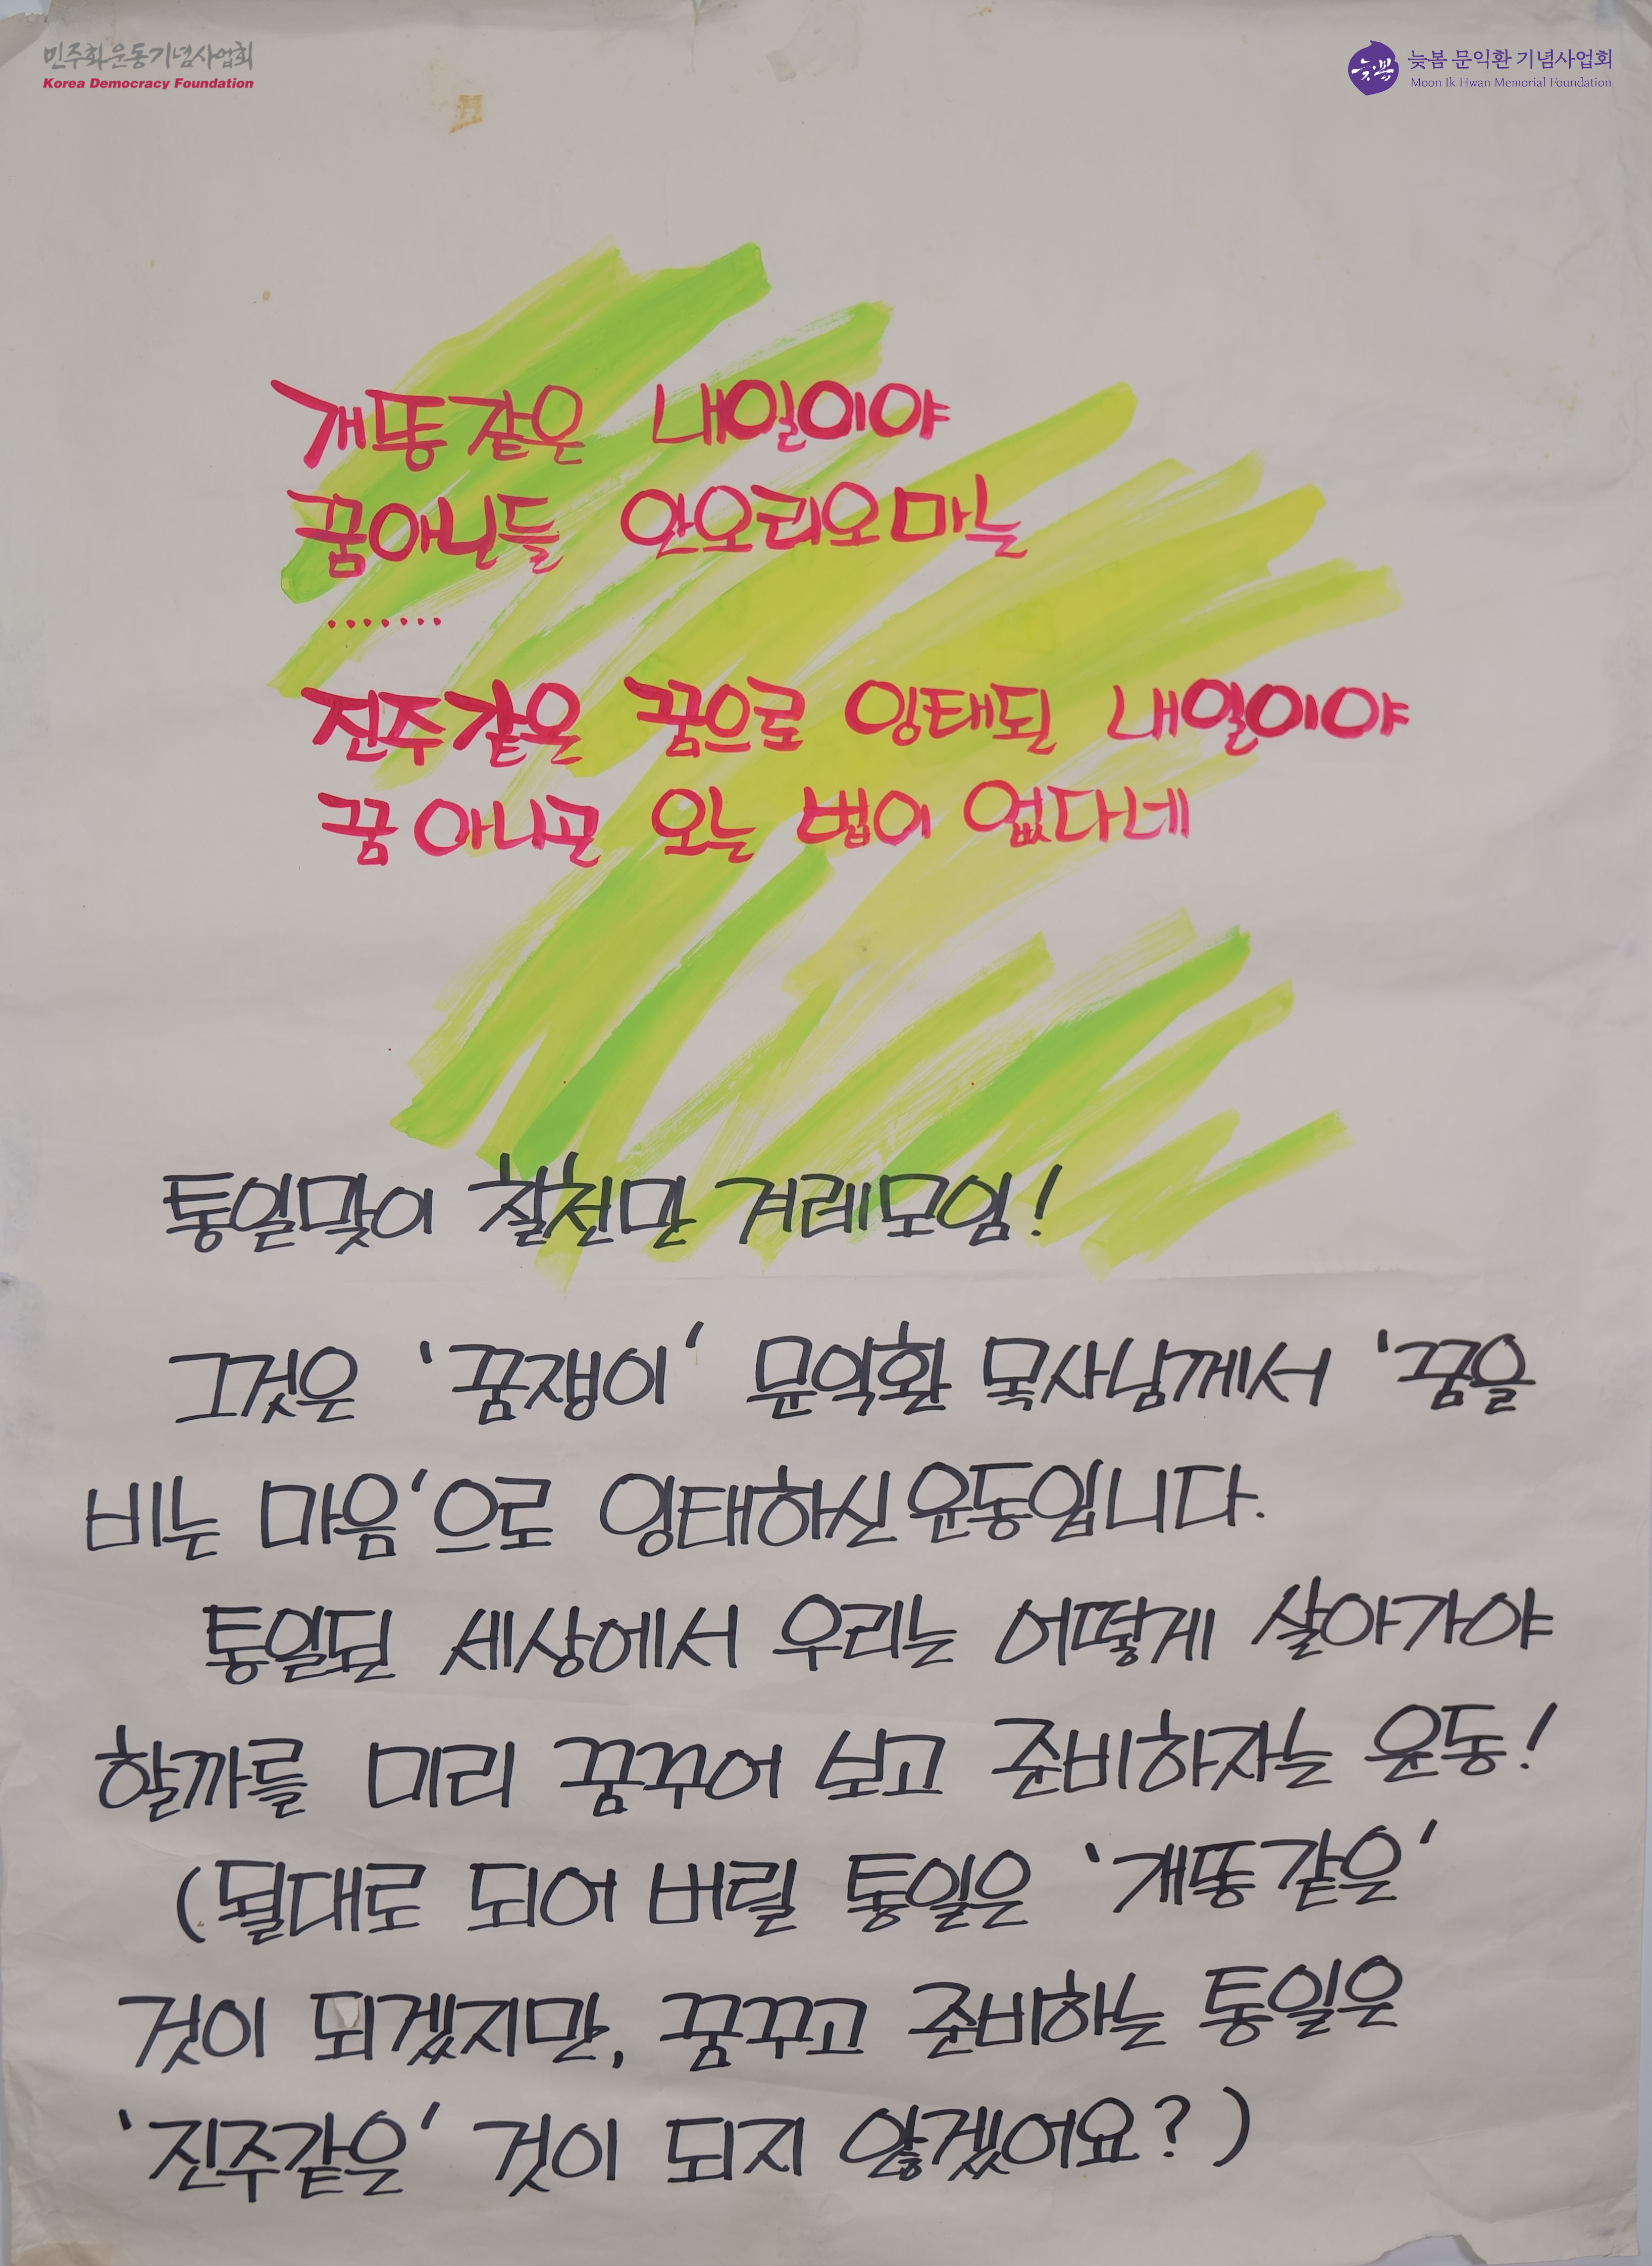 민주화운동기념사업회
Korea Democracy Foundation
늦봄
늦봄 문익환 기념사업회
Moon Ik Hwan Memorial Foundation
개똥같은 내일이야
꿈아닌들 안오리오마는
.......
진주같은 꿈으로 잉태된 내일이야
꿈 아니곤 오는 법이 없다네
통일맞이 칠천만 겨레모임!
그것은 '꿈쟁이' 문익환 목사님께서 '꿈을
비는 마음'으로 잉태하신 운동입니다.
통일된 세상에서 우리는 어떻게 살아가야
할까를 미리 꿈꾸어 보고 준비하자는 운동!
(될대로 되어 버릴 통일은 '개똥같은'
것이 되겠지만, 꿈꾸고 준비하는 통일은
'진주같은' 것이 되지 않겠어요?)